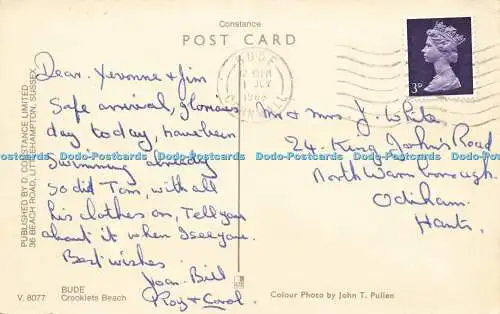 Constance
POST CARD
BUDE
JLY
3D
Dear Yevonne & Jim
Safe arrival, glorious
day today, have been
Swimming already
so did Tom, with all
his clothes on, Tell you
about it when I see you.
Best wishes
Joan. Bill
Roy & Carol.
Mr & Mrs J. White
24. King John's Road
North Warnborough.
Odiham.
Hants.
PUBLISHED BY D. CONSTANCE LIMITED
36 BEACH ROAD, LITTLEHAMPTON, SUSSEX
Dodo-Postcards Dodo-Postcards Dodo-Postcards Dodo-Postcards Dodo-Postcards Dodo-Postcards
V. 8077
BUDE
Crooklets Beach
Colour Photo by John T. Pullen